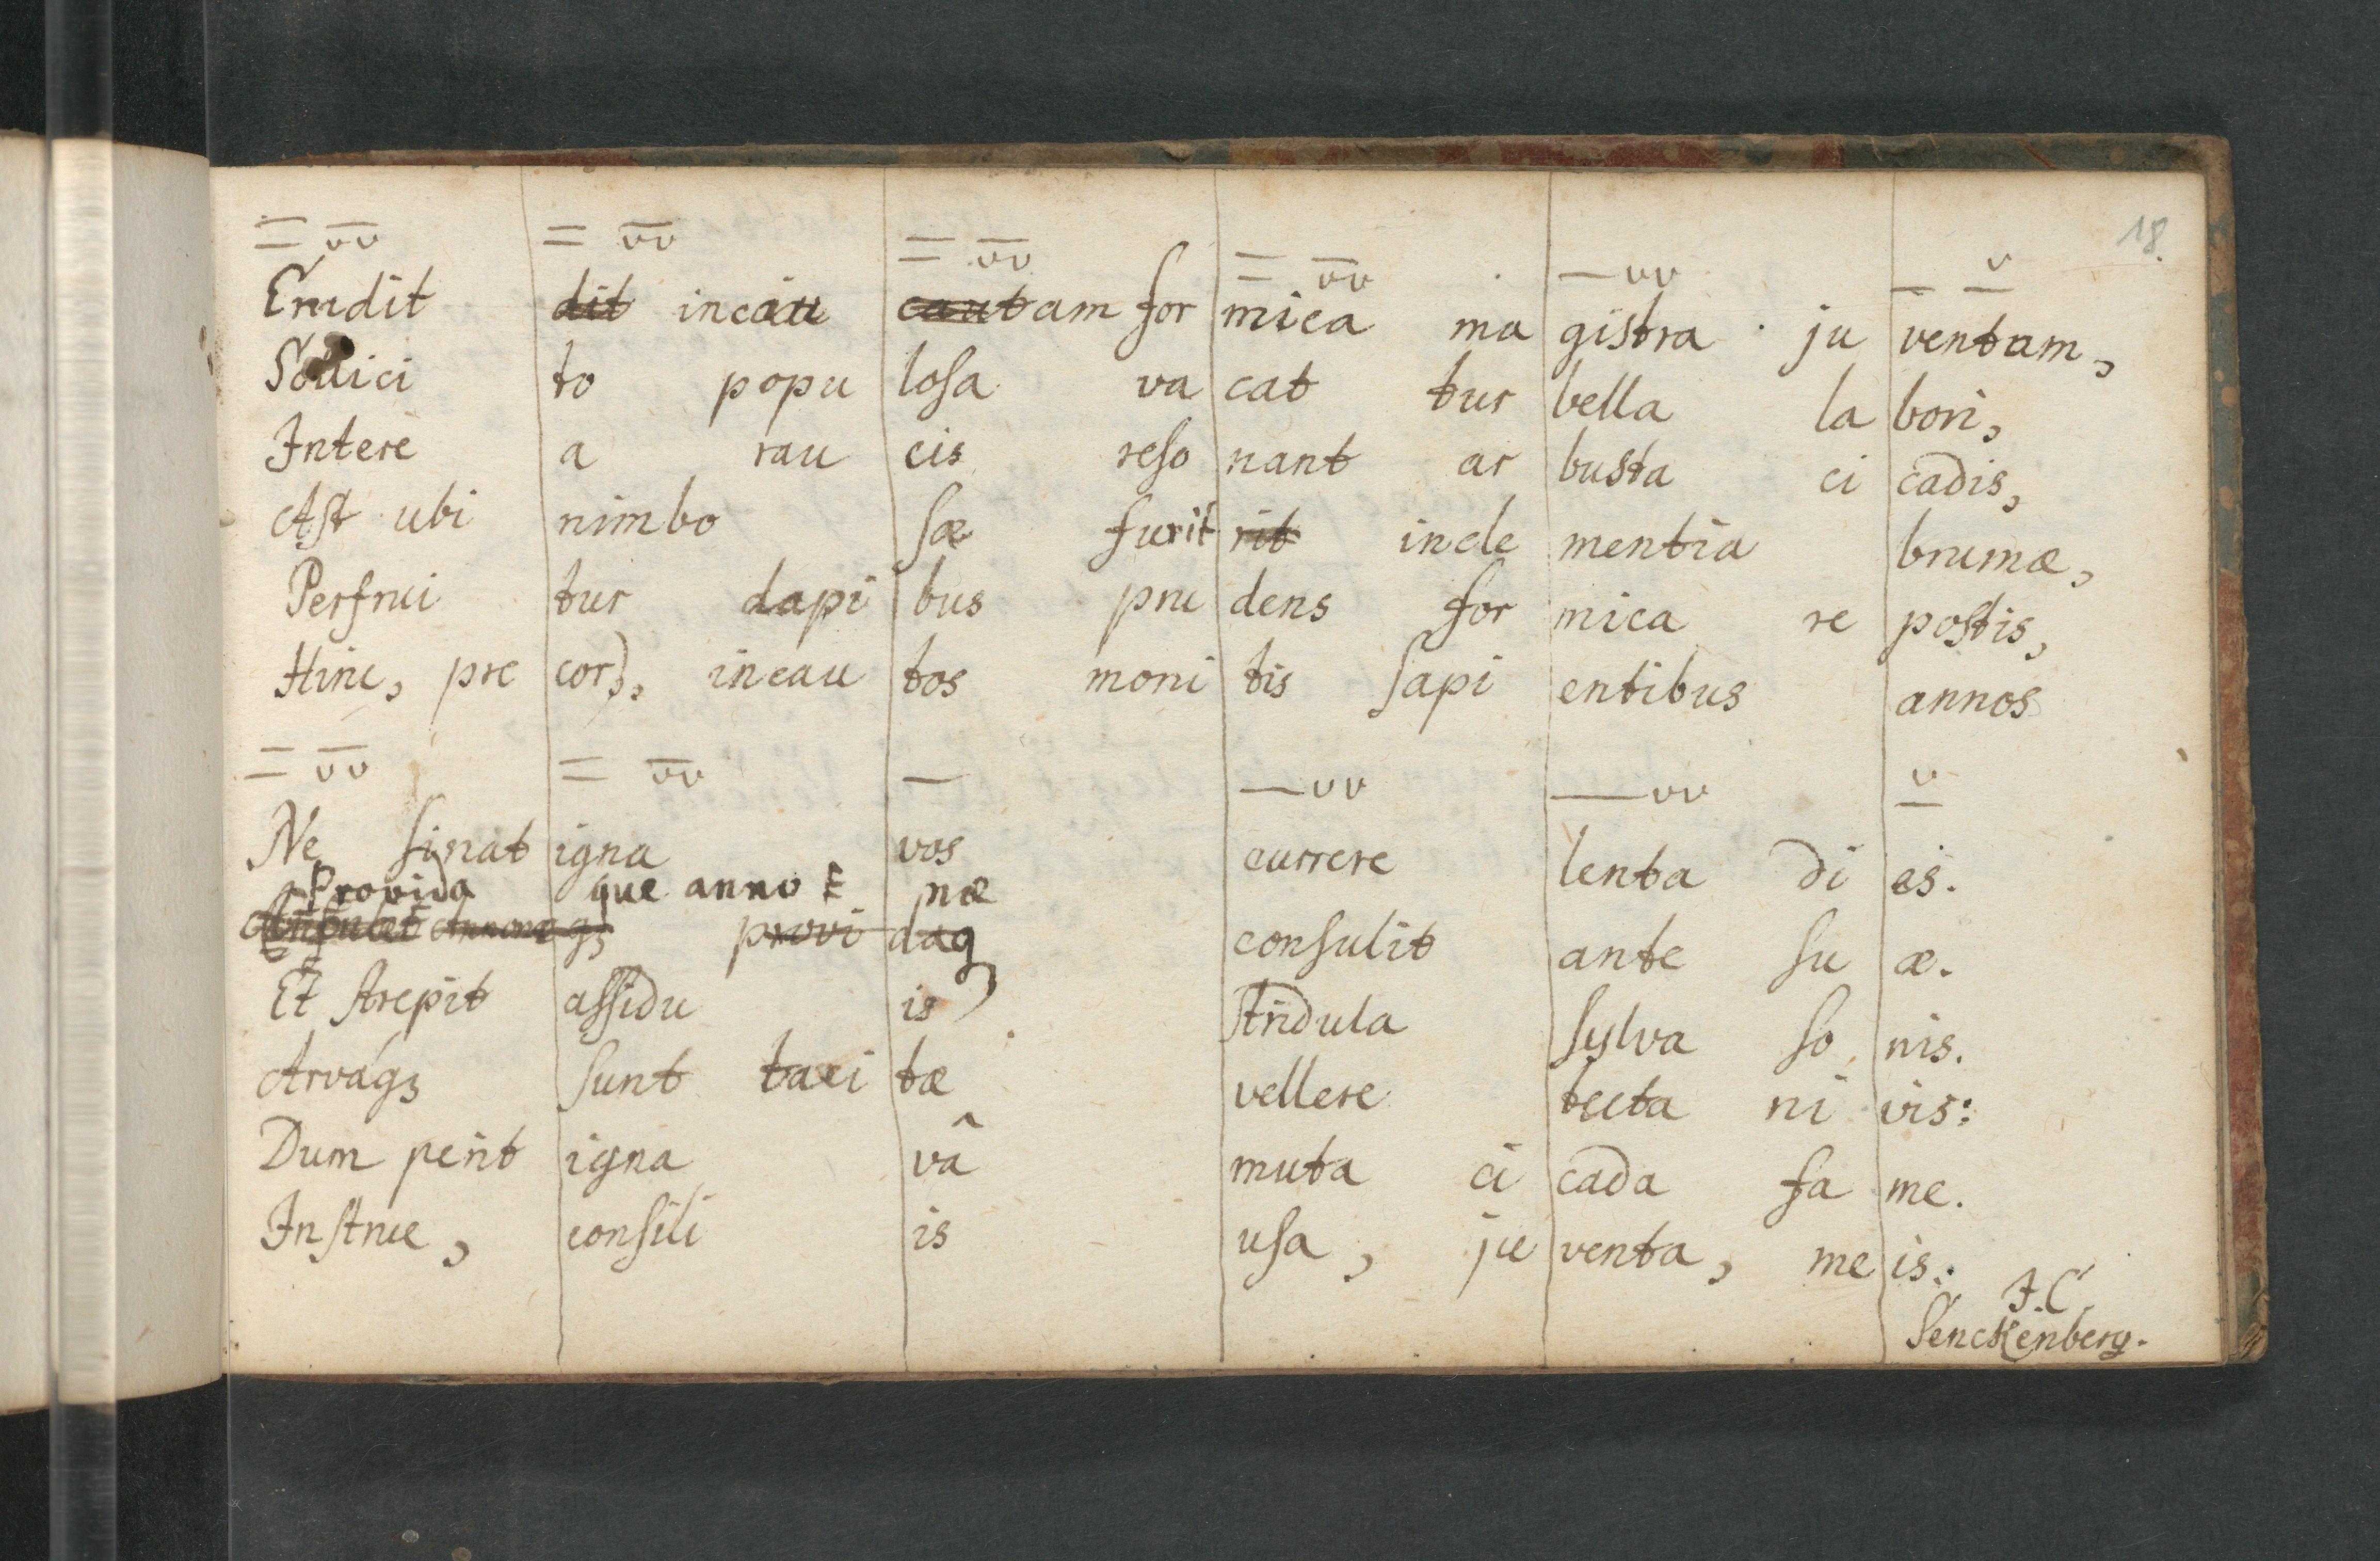 18.
— ᴗᴗ — ᴗᴗ — ᴗᴗ — ᴗᴗ — ᴗᴗ — ᴗ
Erudit dit incau cautam for mica ma gistra ju ventam,
Sollici to popu losa va cat tur bella la bori,
Intere a rau cis reso nant ar busta ci cadis,
Ast ubi nimbo sæ furit rit incle mentia brumæ,
Perfrui tur dapi bus pru dens for mica re postis,
Hinc, pre cor), incau tos moni tis sapi entibus annos
— ᴗᴗ — ᴗᴗ — — ᴗᴗ — ᴗᴗ ᴗ
Ne sinat igna vos currere lenta di es.
Provida que anno næ
Annonæ qꝫ provi daq consulit ante su æ.
Et strepit assidu is stridula sylva so nis.
Arváqꝫ sunt taci tæ vellere tecta ni vis:
Dum perit igna vâ muta ci cada fa me.
Instrue, consili is usa, ju venta, me is.
J. C.
Senckenberg.